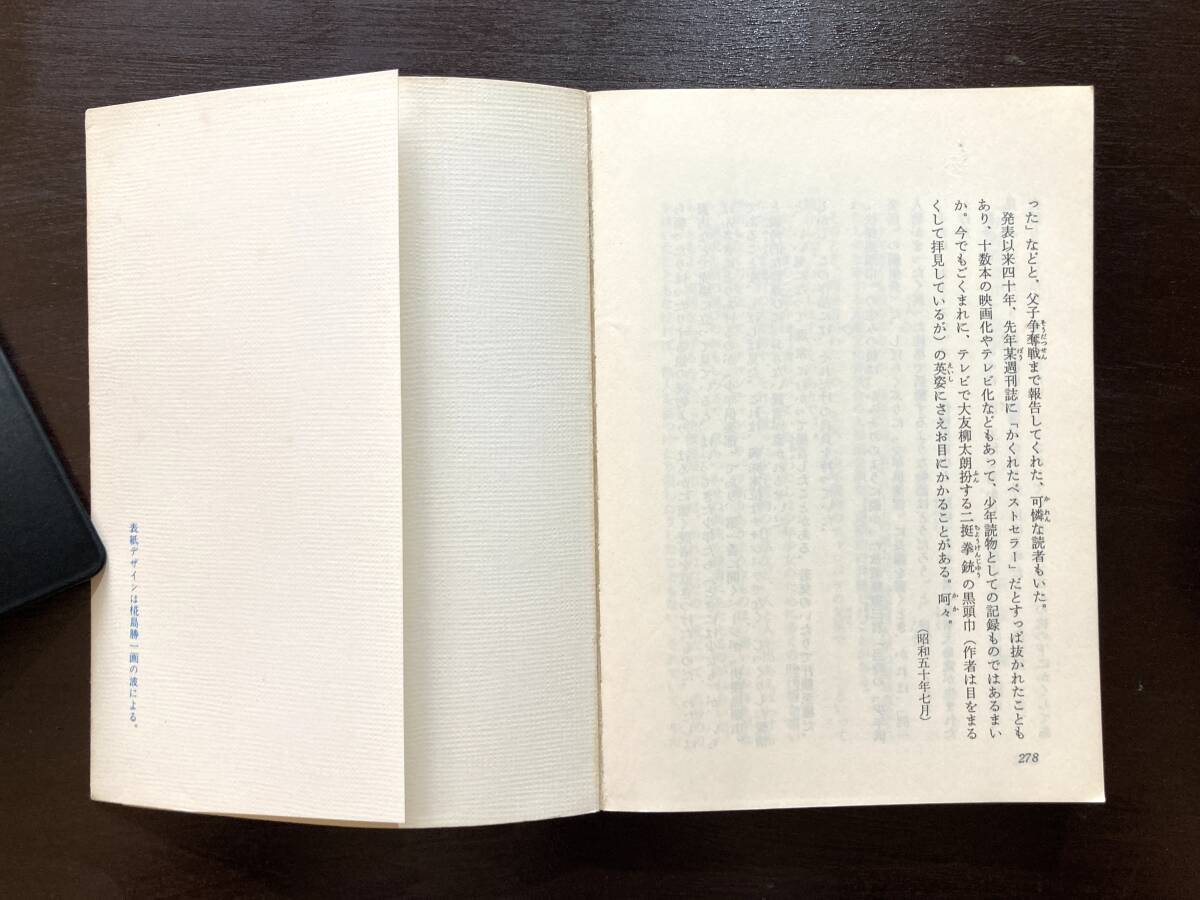 った」などと、父子争奪戦まで報告してくれた、可憐な読者もいた。
発表以来四十年、先年某週刊誌に「かくれたベストセラー」だとすっぱ抜かれたことも
あり、十数本の映画化やテレビ化などもあって、少年読物としての記録ものではあるまい
か。今でもごくまれに、テレビで大友柳太朗扮する二挺拳銃の黒頭巾（作者は目をまる
くして拝見しているが）の英姿にさえお目にかかることがある。呵々。
（昭和五十年七月）
278
表紙デザインは椛島勝一画の波による。